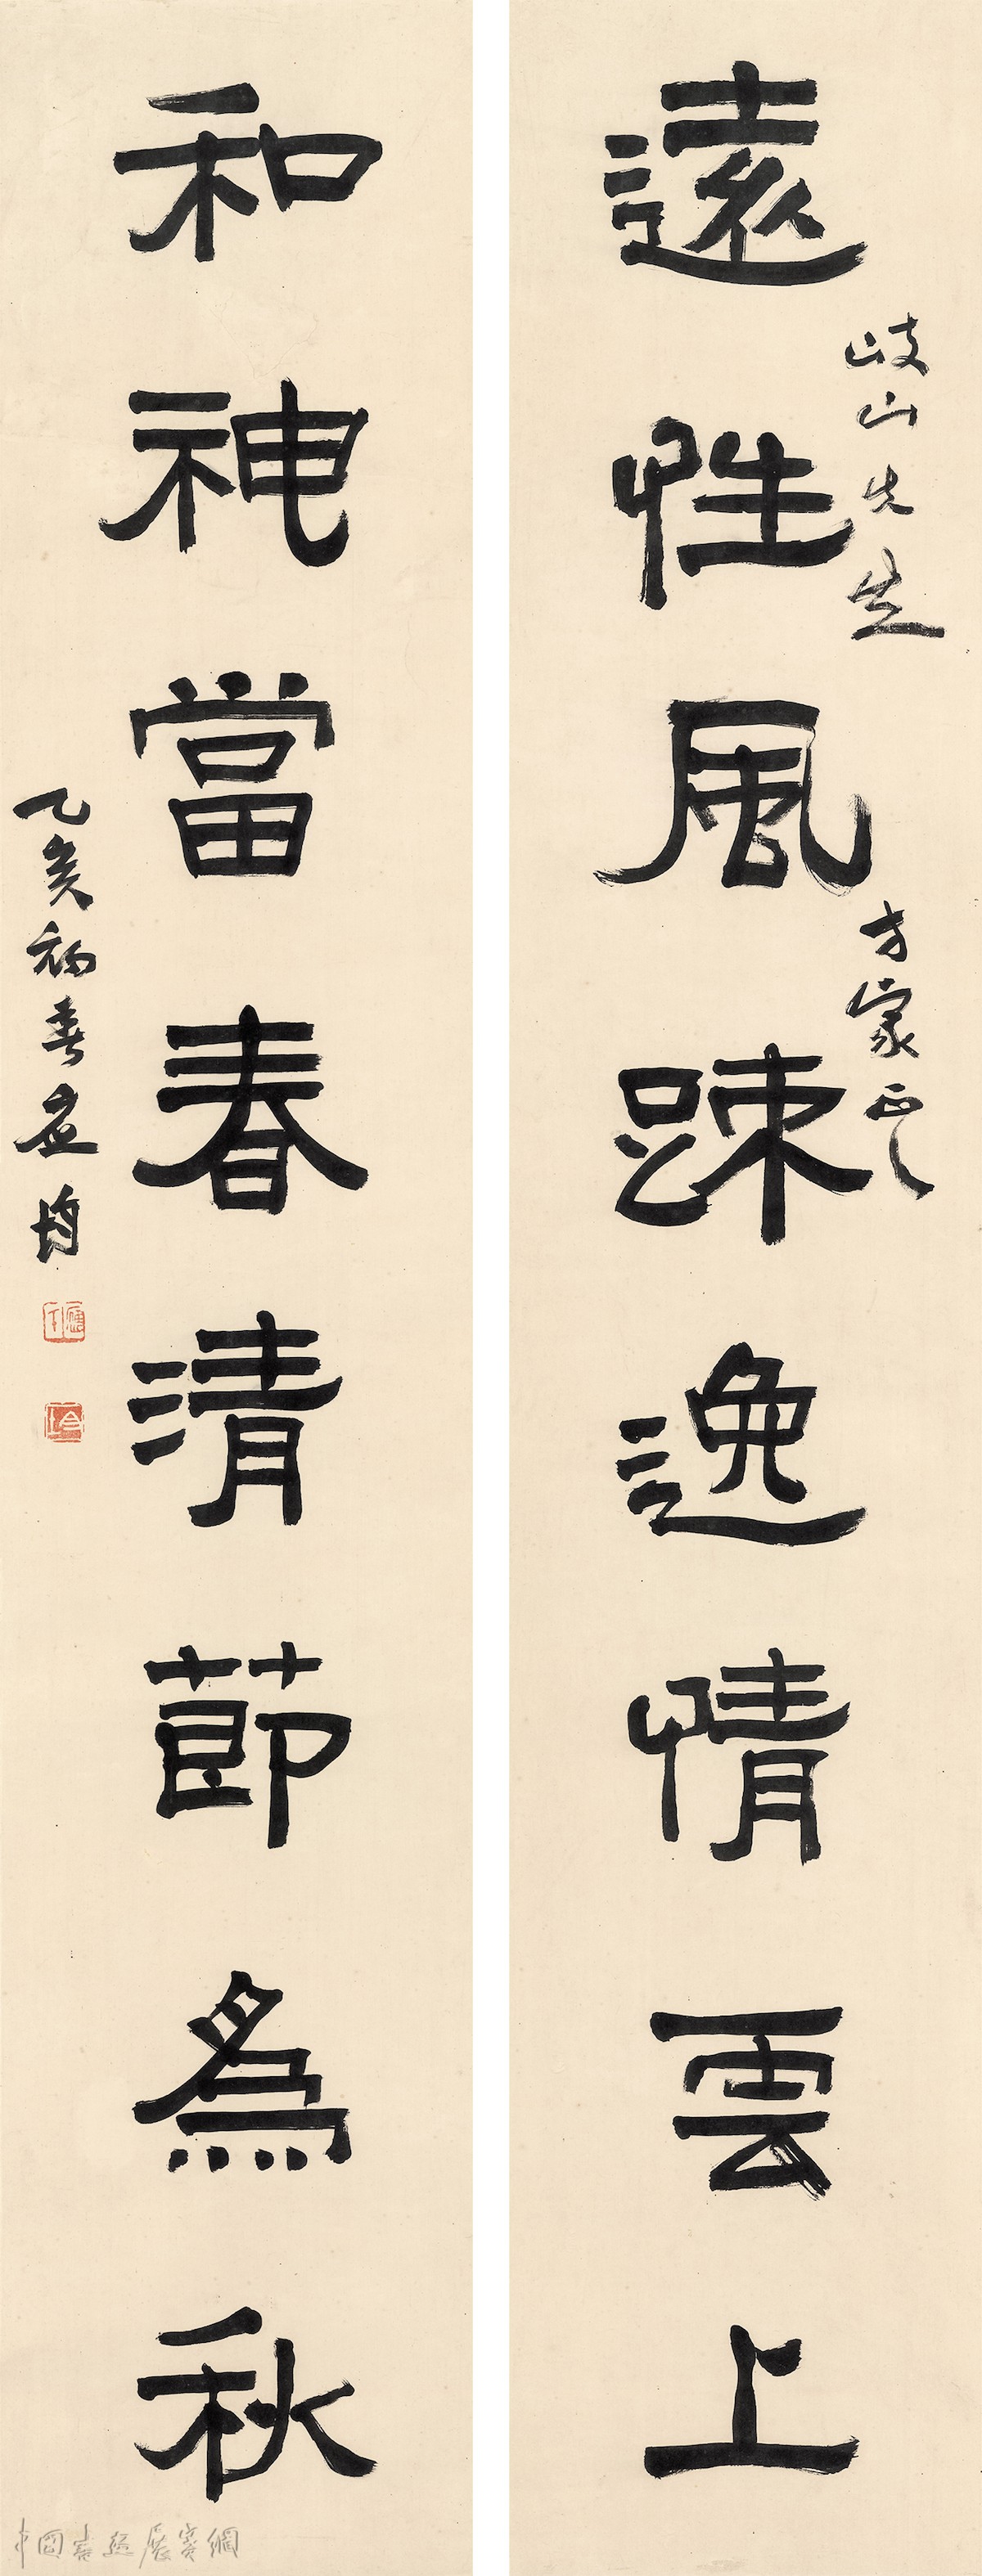 遠性風踈逸情雲上
岐山先生
方家正之
和神當春清節爲秋
乙亥初春应均
中國書法展賽網